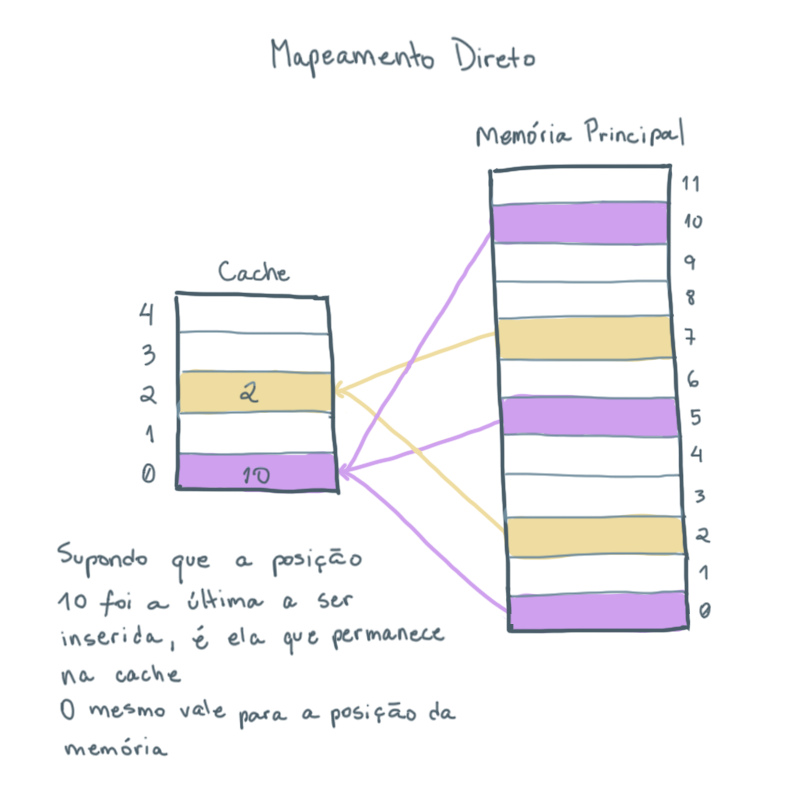 Mapeamento Direto
Memória Principal
11
10
9
8
7
6
5
4
3
2
1
0
Cache
4
3
2
1
0
2
10
Supondo que a posição
10 foi a última a ser
inserida, é ela que permanece
na cache
O mesmo vale para a posição da
memória